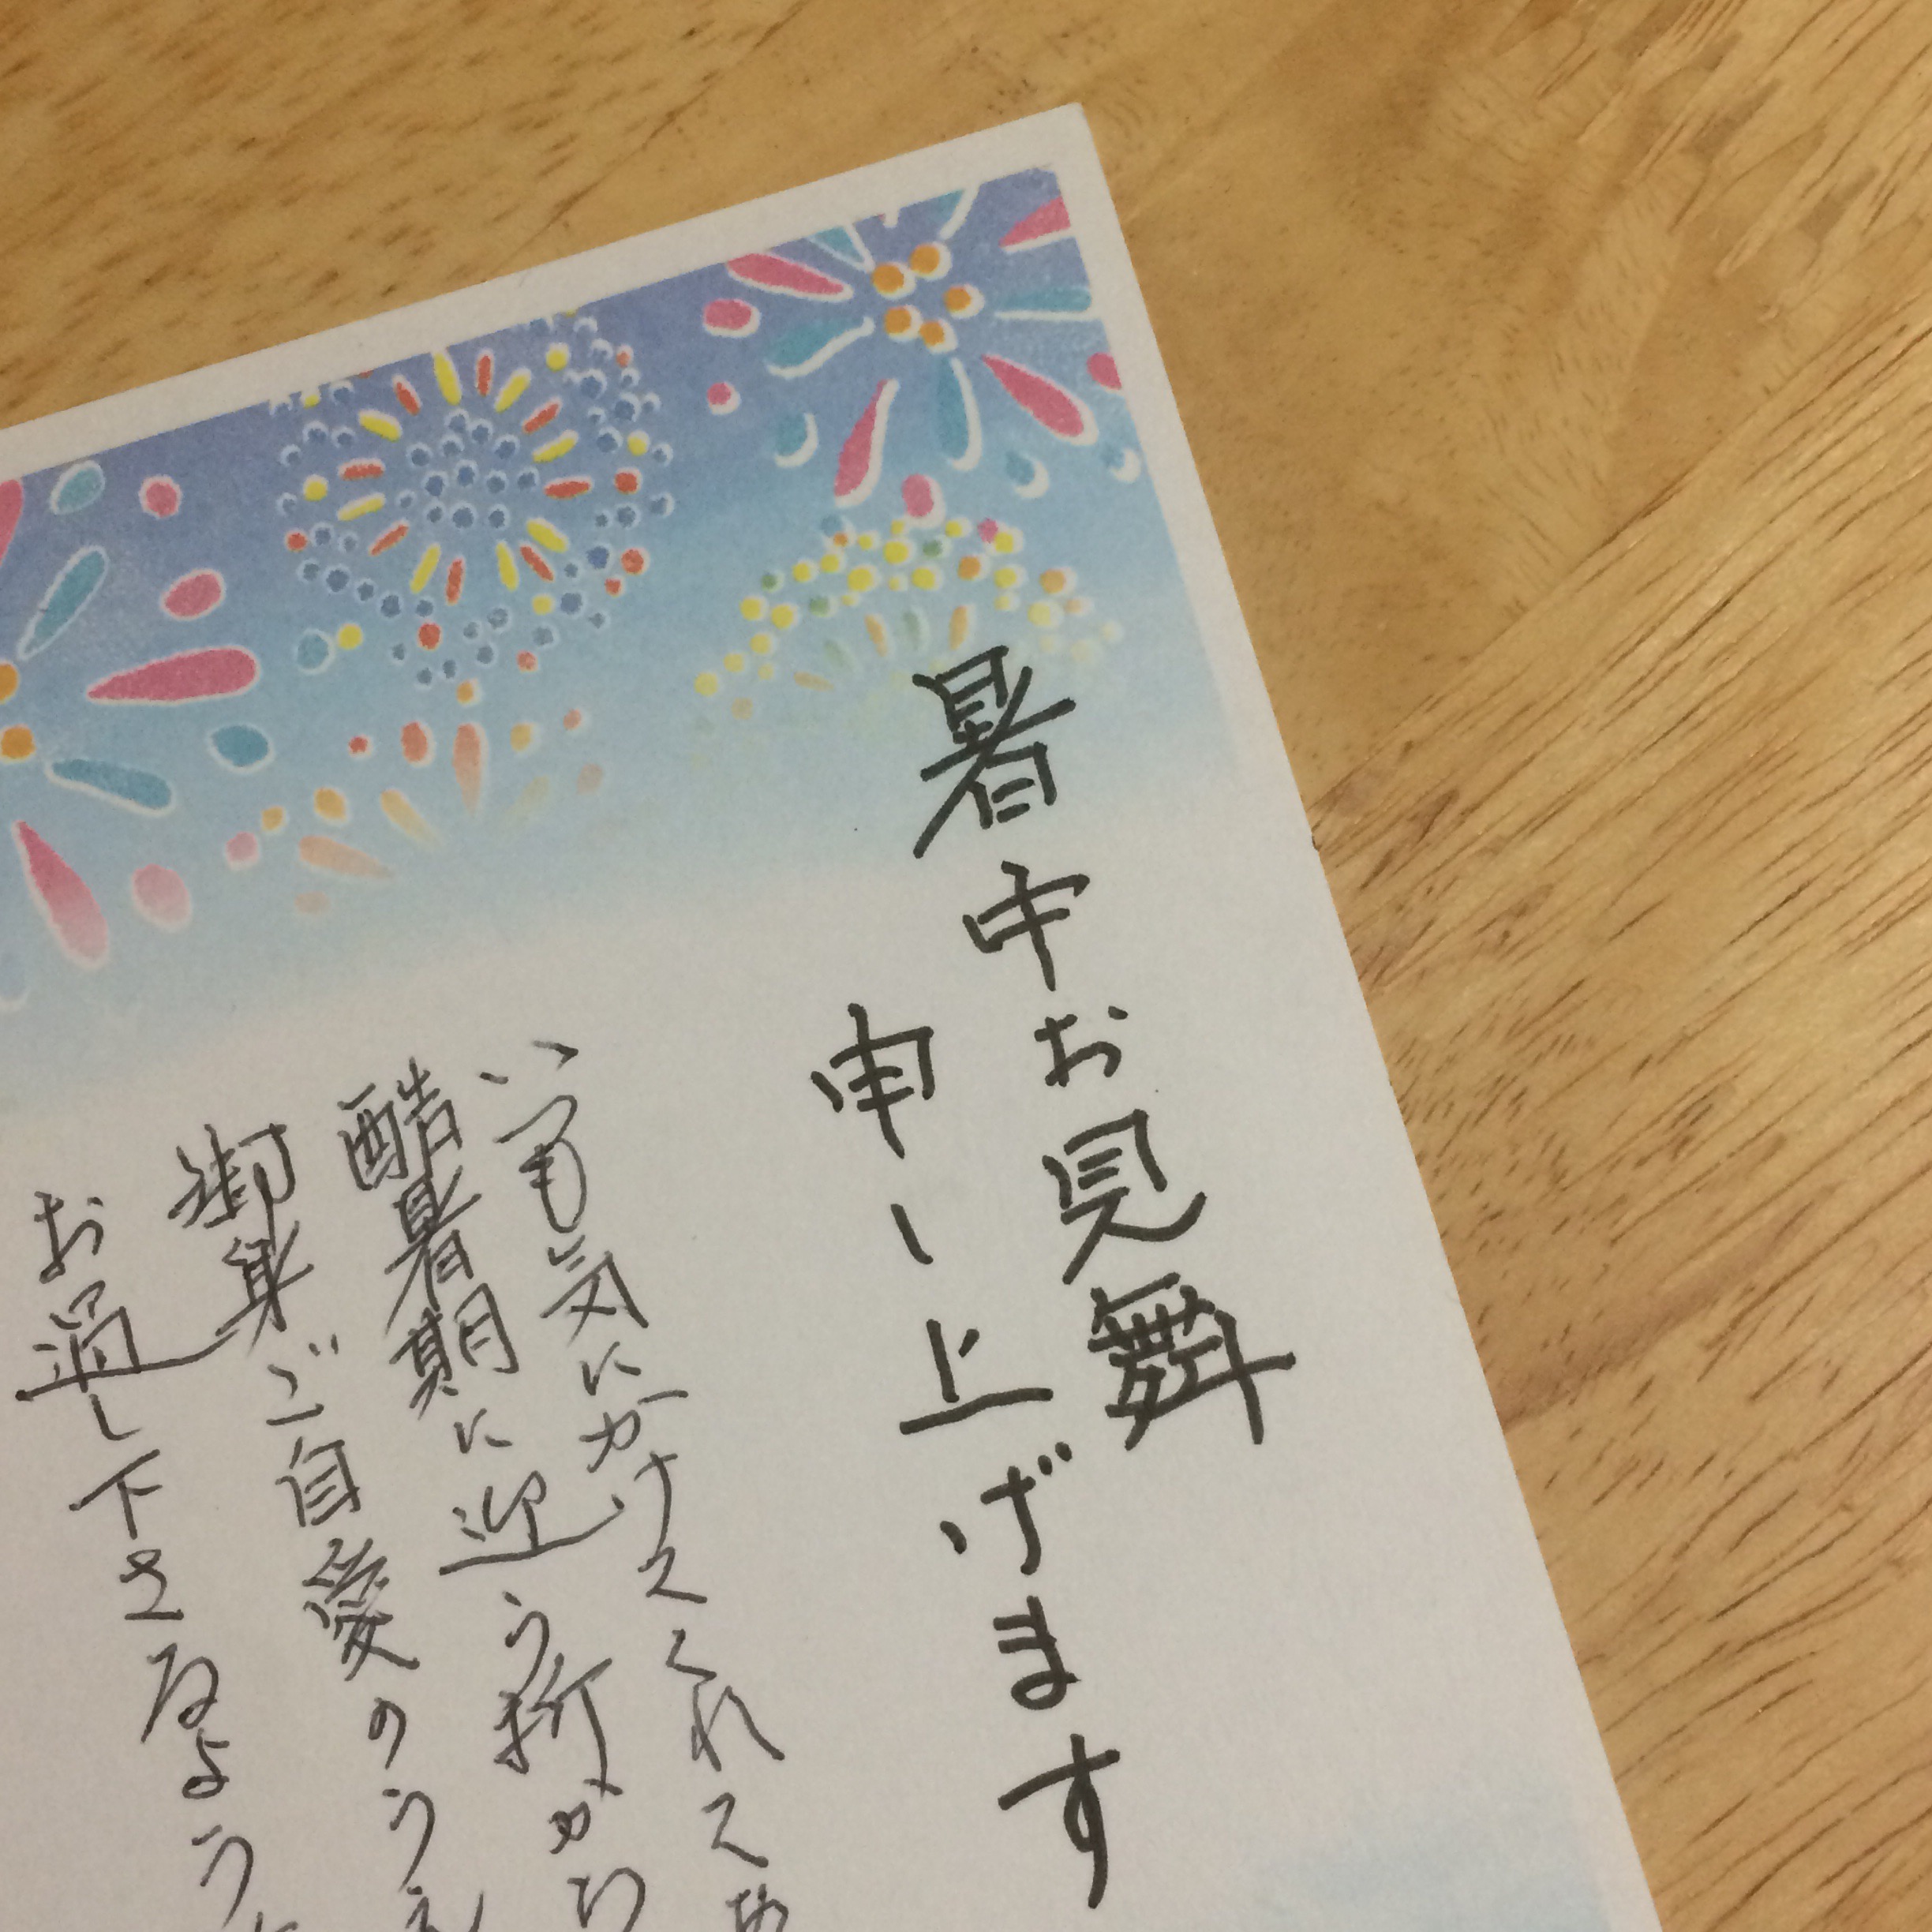 暑中お見舞
申し上げます
いつも気にかけてくれて
酷暑期に迎う折から
御身ご自愛のうえ
お過し下さるよう